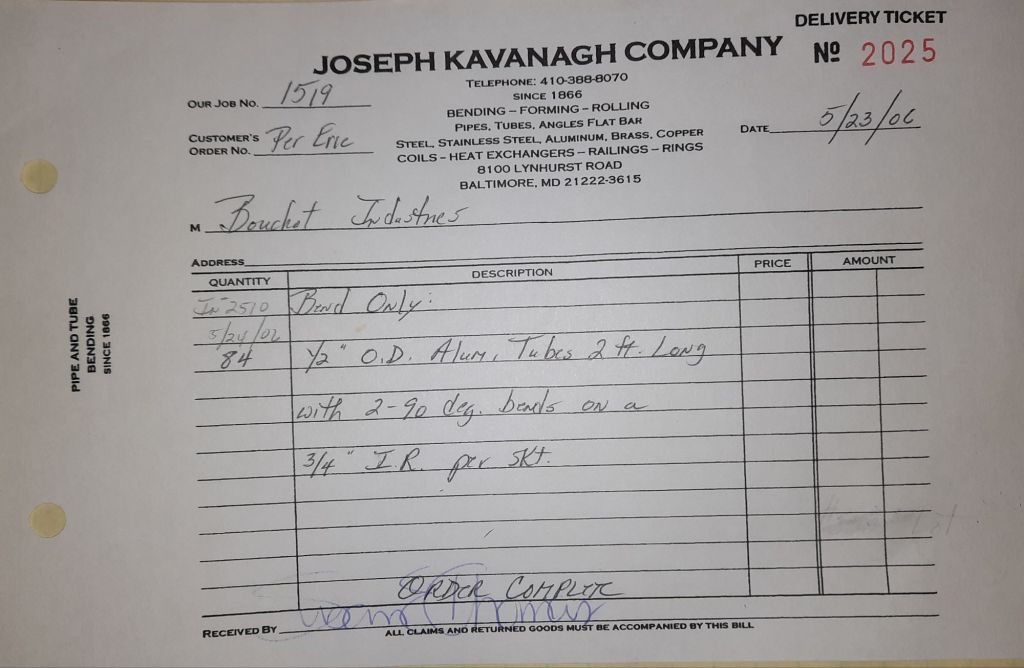 DELIVERY TICKET
JOSEPH KAVANAGH COMPANY
Nº 2025
TELEPHONE: 410-388-8070
SINCE 1866
OUR JOB NO. 1519
BENDING – FORMING – ROLLING
PIPES, TUBES, ANGLES FLAT BAR
CUSTOMER'S ORDER NO. Per Eric
STEEL, STAINLESS STEEL, ALUMINUM, BRASS, COPPER
DATE 5/23/06
COILS – HEAT EXCHANGERS – RAILINGS – RINGS
8100 LYNHURST ROAD
BALTIMORE, MD 21222-3615
M Bouchat Industries
ADDRESS
QUANTITY DESCRIPTION PRICE AMOUNT
In 2510 Bend Only:
5/24/06
84 1/2" O.D. Alum. Tubes 2 ft. Long
with 2-90 deg. bends on a
3/4" I.R. per skt.
ORDER COMPLETE
RECEIVED BY
ALL CLAIMS AND RETURNED GOODS MUST BE ACCOMPANIED BY THIS BILL
PIPE AND TUBE
BENDING
SINCE 1866